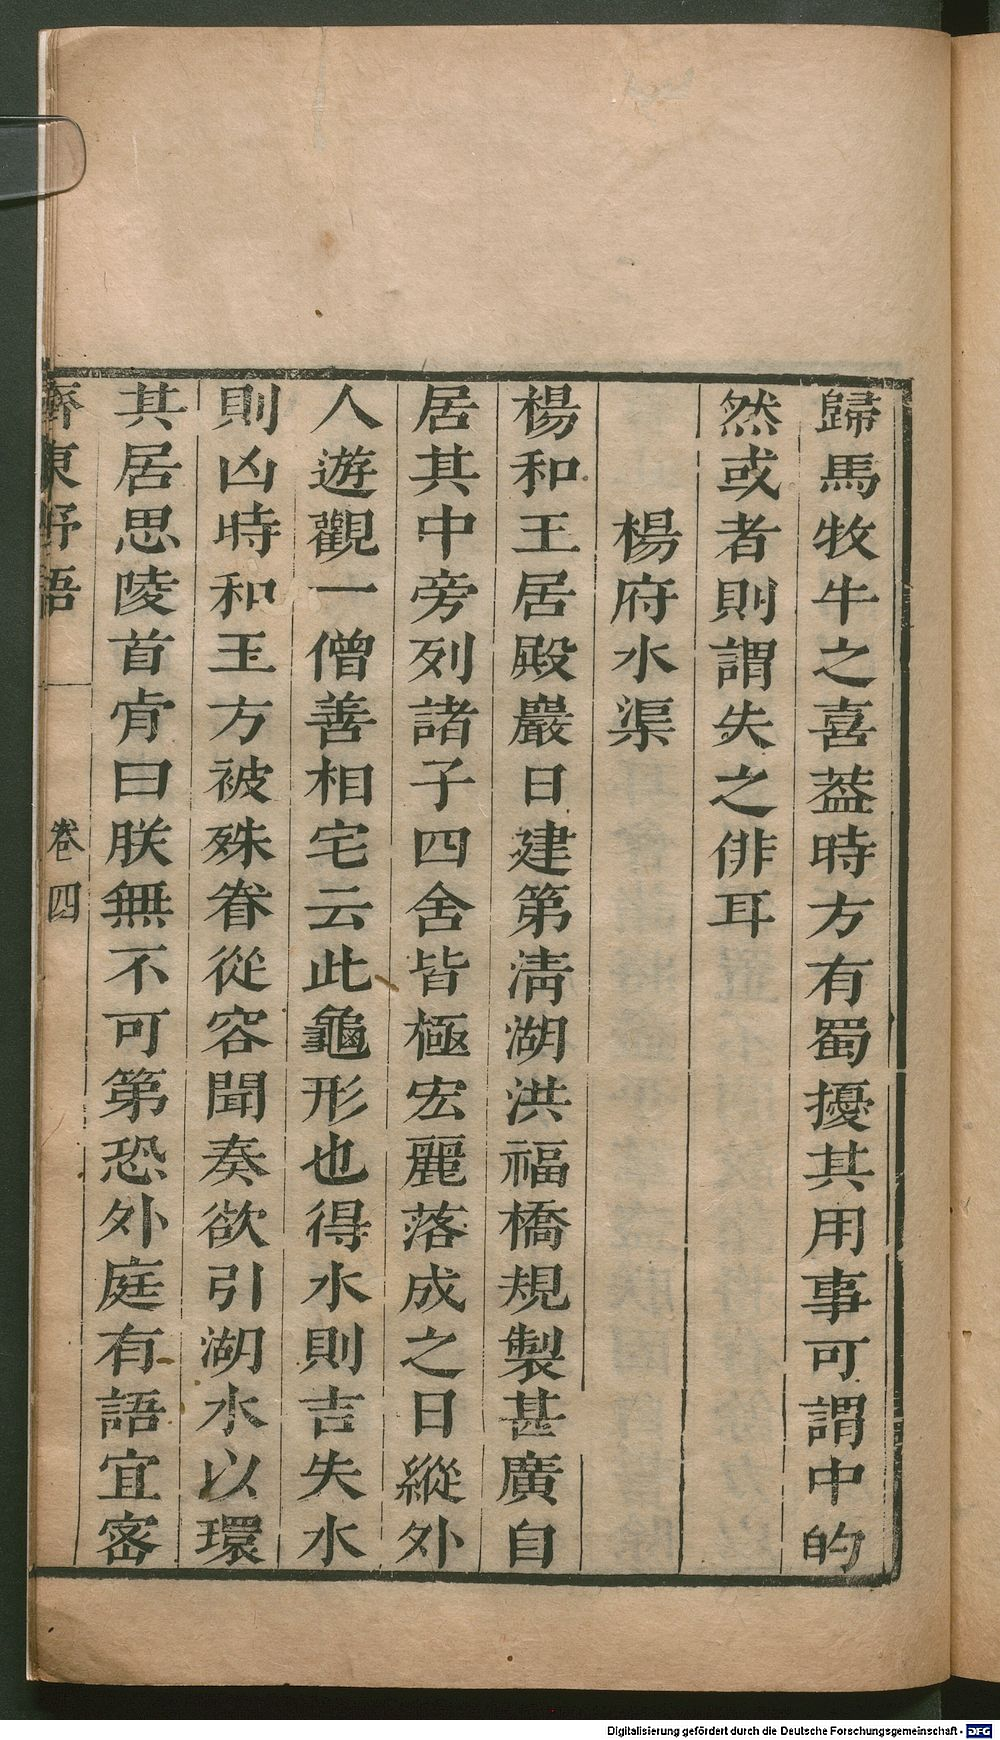 歸馬牧牛之喜葢時方有蜀擾其用事可謂中的
然或者則謂失之俳耳
楊府水渠
楊和王居殿巖日建第淸湖洪福橋規製甚廣自
居其中旁列諸子四舍皆極宏麗落成之日縱外
人遊觀一僧善相宅云此龜形也得水則吉失水
則凶時和王方被殊眷從容聞奏欲引湖水以環
其居思陵首肯曰朕無不可第恐外庭有語宜宻
齊東野語
卷四
Digitalisierung gefördert durch die Deutsche Forschungsgemeinschaft - DFG